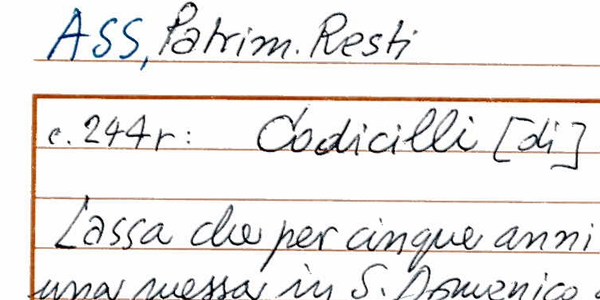 ASS, Patrim. Resti
c. 244r: Codicilli [di]
Lassa che per cinque anni
una messa in S. Domenico